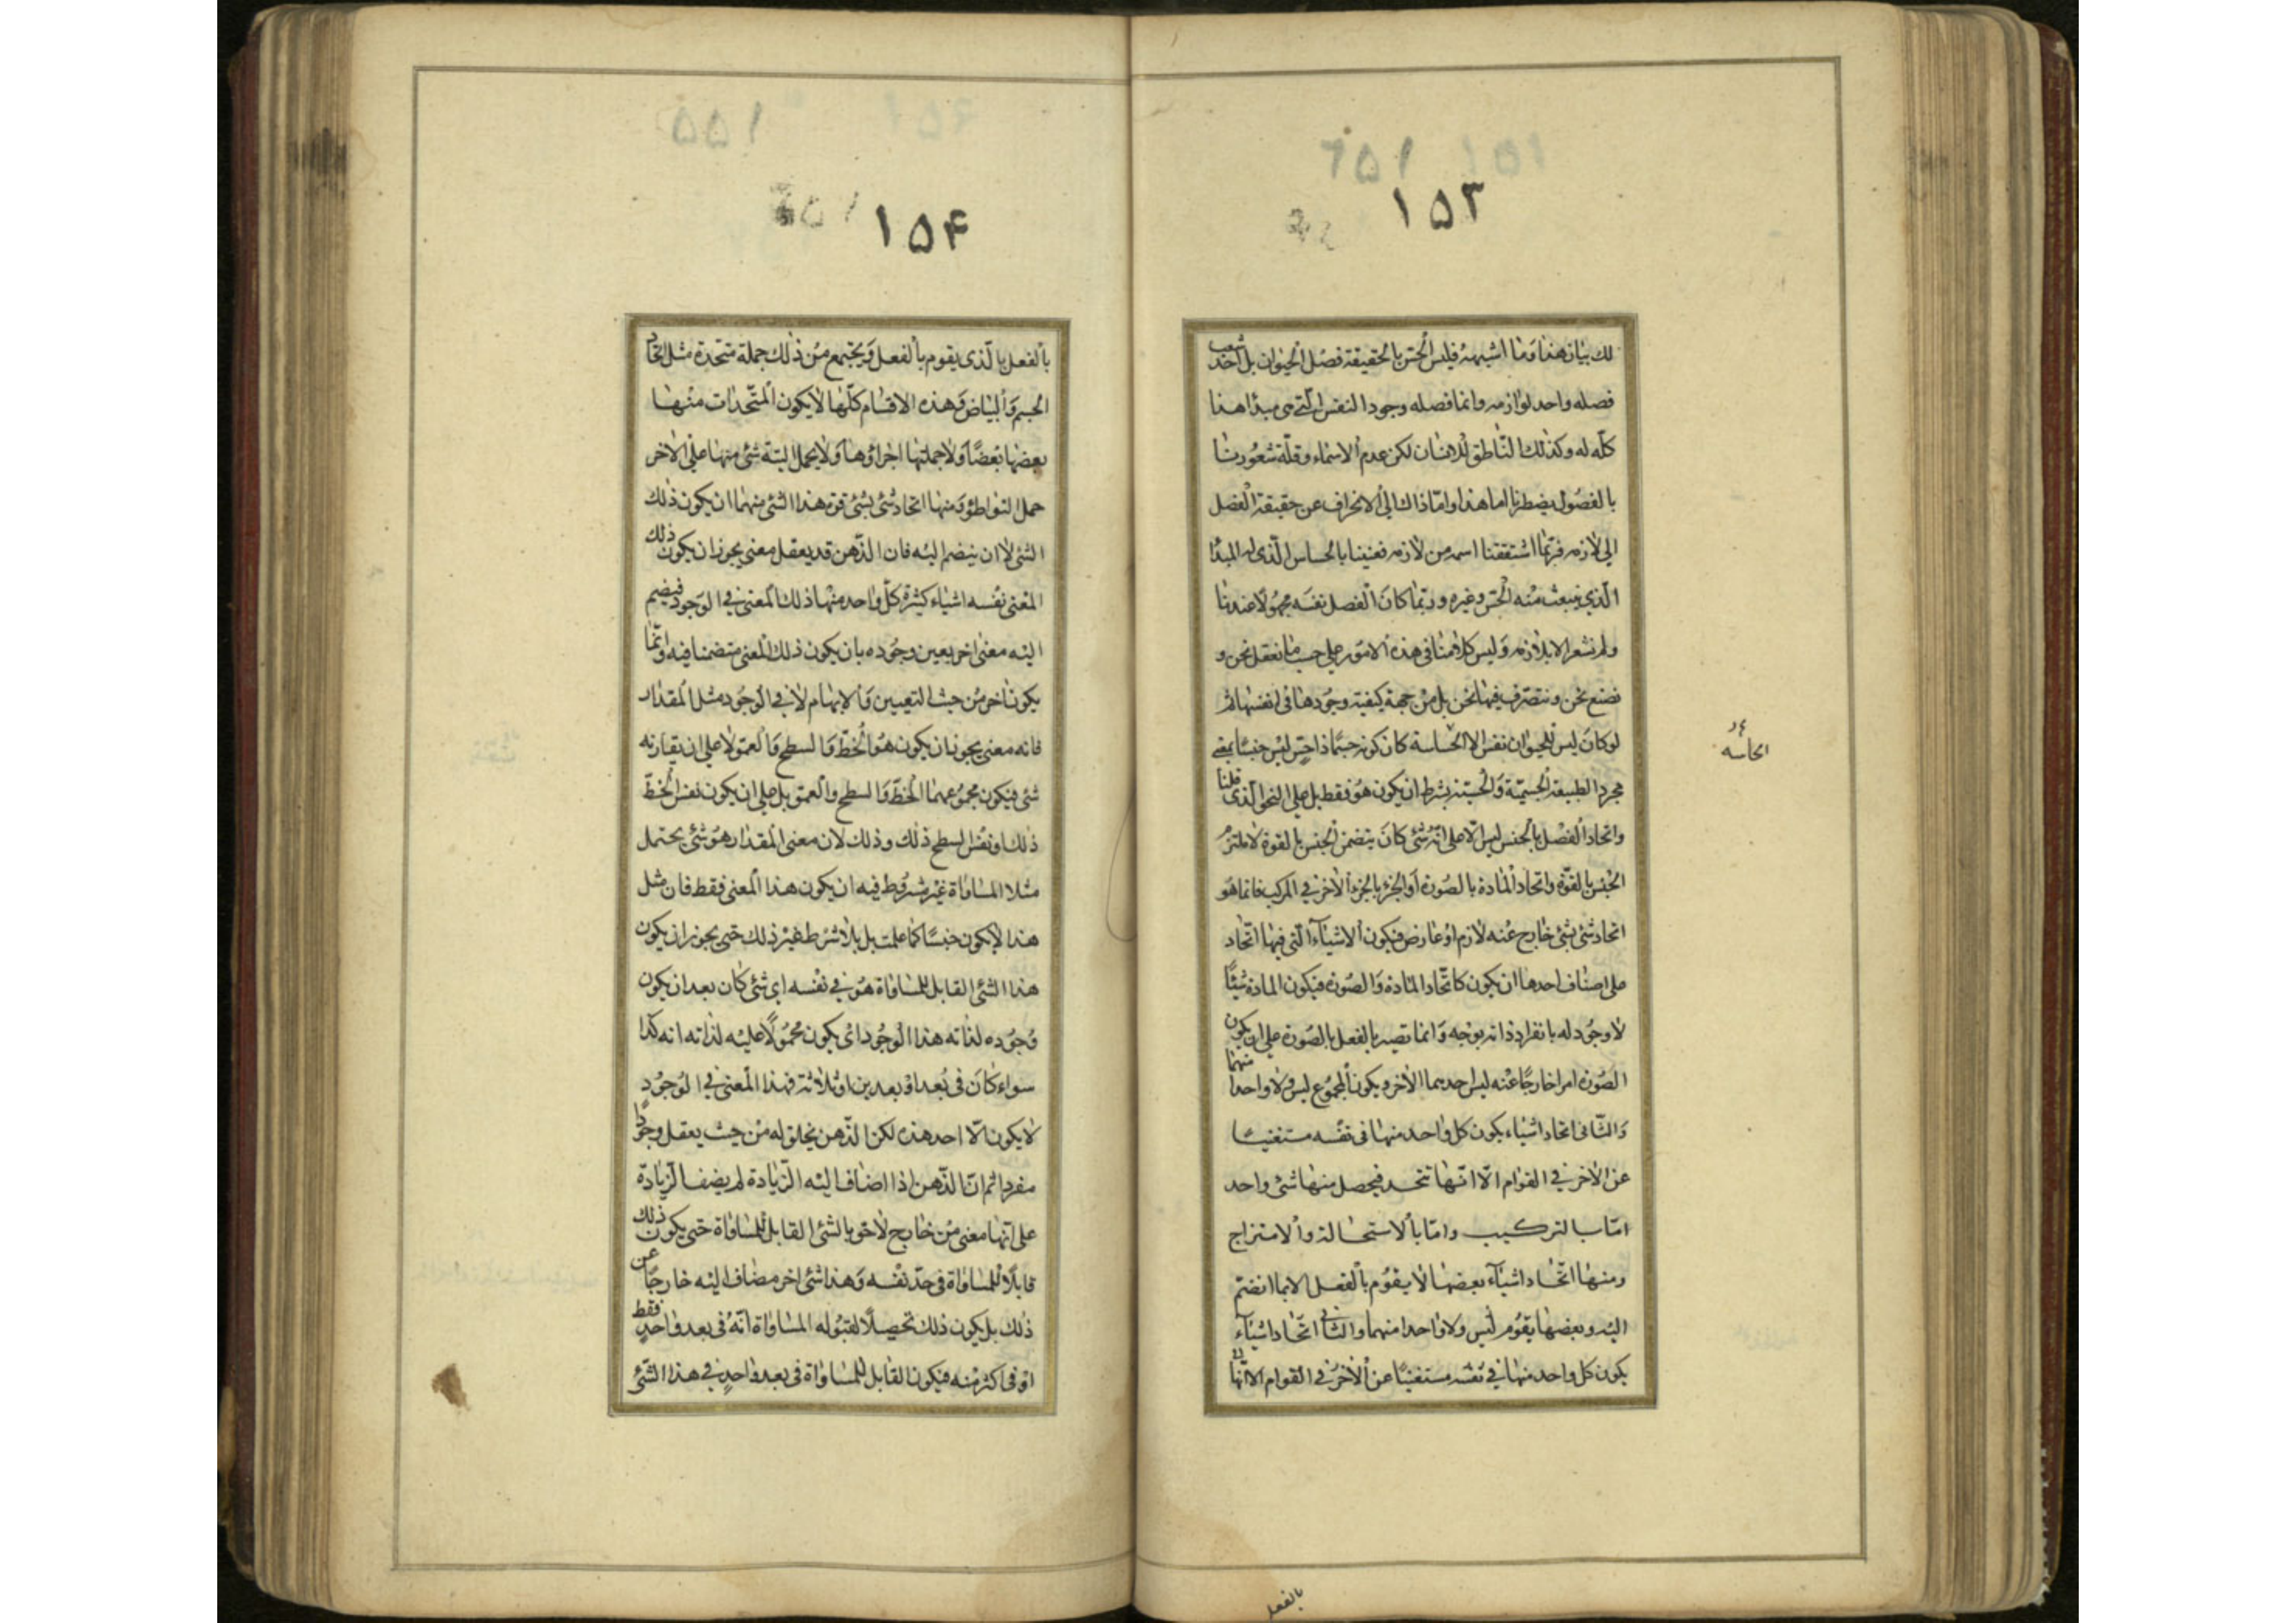 ١٥٣
لك بيان هذا وما اشبهه فليس الحس بالحقيقة فصل الحيوان بل احد شعب
فصله واحد لوازمه وانما فصله وجود النفس التي هى مبدأ هذا
كله له وكذلك الناطق للانسان لكن عدم الاسماء وقلة شعورنا
بالفصول يضطرنا اما هذا واما ذاك الى الانحراف عن حقيقة الفصل
الى لازمه فربما اشتققنا اسمه من لازمه فعنينا بالحساس الذى له المبدأ
الذي ينبعث منه الحس وغيره وربما كان الفصل نفسه مجهولا عندنا
ولم نشعر الا بلازمه وليس كلامنا فى هذه الامور على حسب ما نعقل نحن و
نصنع نحن ونتصرف فيها نحن بل من جهة كيفية وجودها فى انفسها ثم
لو كان ليس للحيوان نفس الا الحساسة كان كونه جسما ذا حس ليس جنسا بمعنى
مجرد الطبيعة الجسمية والحسية بشرط ان يكون هو فقط بل على النحو الذى قلنا
واتحاد الفصل بالجنس ليس الا على انه شئ كان يتضمن الجنس بالقوة لا ملتزم
الجنس بالقوة واتحاد المادة بالصورة او الجزء بالجزء الاخر في المركب فانما هو
اتحاد شئ بشئ خارج عنه لازم او عارض فيكون الاشياء التي فيها اتحاد
على اصناف احدها ان يكون كاتحاد المادة والصورة فيكون المادة شيئا
لا وجود له بانفراد ذاته بوجه وانما تصير بالفعل بالصورة على ان يكون
الصورة امرا خارجا عنه ليس احدهما الاخر ويكون المجموع ليس ولا واحدا منهما
والثانى اتحاد اشياء يكون كل واحد منها فى نفسه مستغنيا
عن الاخر في القوام الا انها تتحد فيحصل منها شئ واحد
اما بالتركيب واما بالاستحالة والامتزاج
ومنها اتحاد اشياء بعضها لا يقوم بالفعل الا بما انضم
اليه وبعضها يقوم ليس ولا واحدا منهما والثانى اتحاد اشياء
يكون كل واحد منها في نفسه مستغنيا عن الاخر في القوام الا انها
الحاسه
بالفعل
١٥۴
بالفعل بالذى يقوم بالفعل ويجتمع من ذلك جملة متحدة مثل اتحاد
الجسم والبياض وهذه الاقسام كلها لا يكون المتحدات منها
بعضها بعضا ولا جملتها اجزاؤها ولا يحمل البتة شئ منها على الاخر
حمل التواطؤ ومنها اتحاد شئ بشئ قوة هذا الشئ منهما ان يكون ذلك
الشئ لا ان ينضم اليه فان الذهن قد يعقل معنى يجوز ان يكون ذلك
المعنى نفسه اشياء كثيرة كل واحد منها ذلك المعنى في الوجود فيضم
اليه معنى اخر يعين وجوده بان يكون ذلك المعنى متضمنا فيه وانما
يكون اخر من حيث التعيين والابهام لا في الوجود مثل المقدار
فانه معنى يجوز ان يكون هو الخط والسطح والعمق لا على ان يقارنه
شئ فيكون مجموعهما الخط والسطح والعمق بل على ان يكون نفس الخط
ذلك او نفس السطح ذلك وذلك لان معنى المقدار هو شئ يحتمل
مثلا المساواة غير مشروط فيه ان يكون هذا المعنى فقط فان مثل
هذا لا يكون جنسا كما علمت بل بلا شرط غير ذلك حتى يجوز ان يكون
هذا الشئ القابل للمساواة هو في نفسه اى شئ كان بعد ان يكون
وجوده لذاته هذا الوجود اى يكون محمولا عليه لذاته انه كذا
سواء كان فى بعد او بعدين او ثلاثة فهذا المعنى في الوجود
لا يكون الا احد هذه لكن الذهن يخلق له من حيث يعقل وجودا
مفردا ثم ان الذهن اذا اضاف اليه الزيادة لم يضف الزيادة
على انها معنى من خارج لاحق بالشئ القابل للمساواة حتى يكون ذلك
قابلا للمساواة فى حد نفسه وهذا شئ اخر مضاف اليه خارجا عن
ذلك بل يكون ذلك تحصيلا لقبوله المساواة انه فى بعد واحد فقط
او فى اكثر منه فيكون القابل للمساواة فى بعد واحد في هذا الشئ